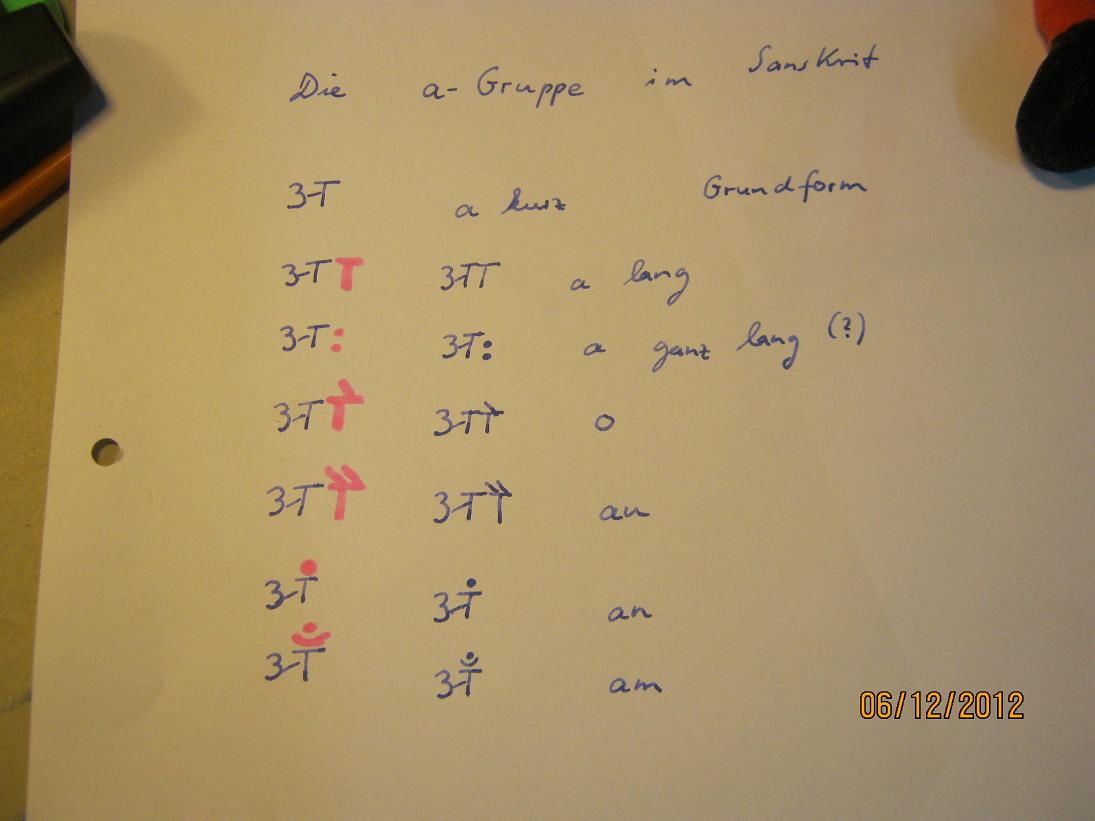 Die a-Gruppe im Sanskrit
अ a kurz Grundform
आ आ a lang
अः अः a ganz lang (?)
ओ ओ o
औ औ au
अं अं an
अँ अँ am
06/12/2012